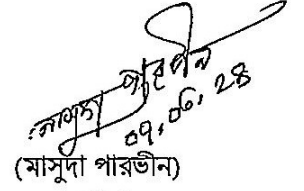 মাসুদা পারভীন
০৭.০৮.২৪
(মাসুদা পারভীন)